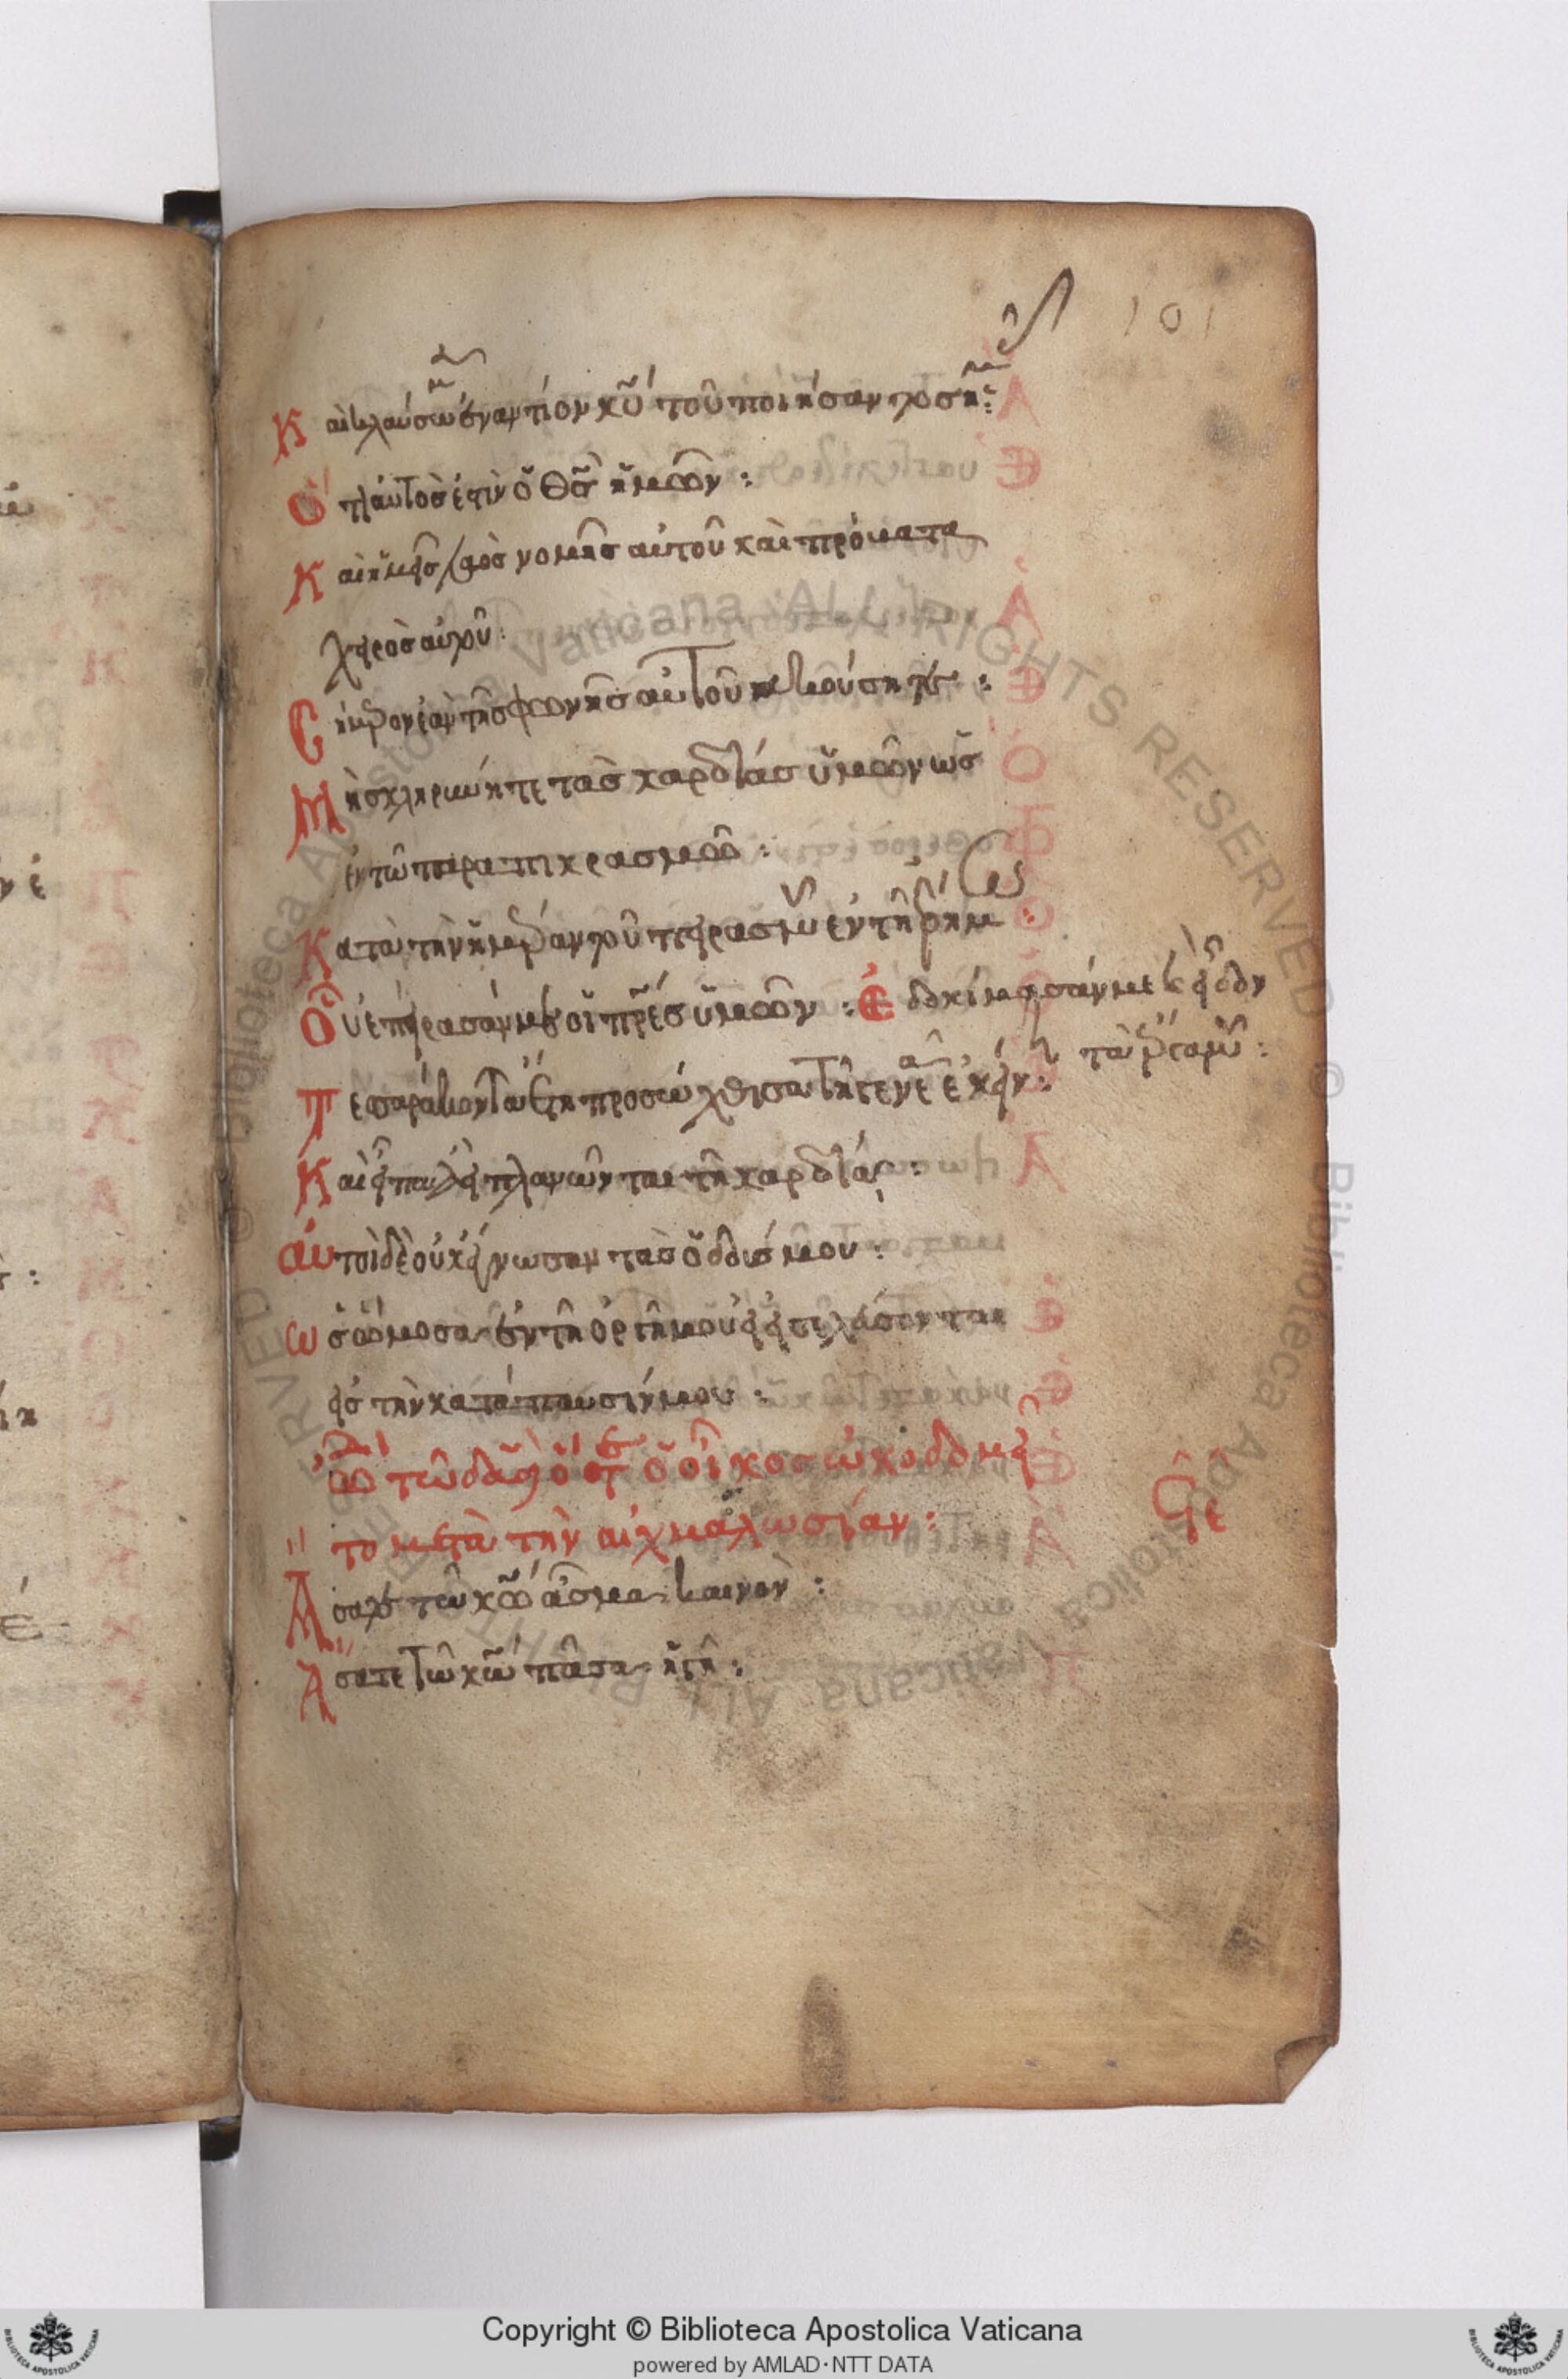 101
Καὶ κλαύσωμεν ἐναντίον κ̅υ̅ τοῦ ποιήσαντος ἡμᾶς:
Ὅτι αὐτός ἐστιν ὁ θ̅σ̅ ἡμῶν:
Καὶ ἡμεῖς λαὸς νομῆς αὐτοῦ καὶ πρόβατα
χειρὸς αὐτοῦ:
Σήμερον ἐὰν τῆς φωνῆς αὐτοῦ ἀκούσητε:
Μὴ σκληρύνητε τὰς καρδίας ὑμῶν ὡς
ἐν τῶ παραπικρασμῶ:
Κατὰ τὴν ἡμέραν τοῦ πειρασμοῦ ἐν τῆ ἐρήμω:
Οὗ ἐπείρασάν με οἱ π̅ρ̅ε̅ς ὑμῶν: Ἐδοκίμασάν με καὶ εἶδον
τὰ ἔργα μου:
Τεσσαράκοντα ἔτη προσώχθισα τῆ γενεᾶ ἐκείνη:
Καὶ εἶπα ἀεὶ πλανῶνται τῆ καρδία:
αὐτοὶ δὲ οὐκ ἔγνωσαν τὰς ὁδούς μου:
ὡς ὤμοσα ἐν τῆ ὀργῆ μου εἰ εἰσελεύσονται
εἰς τὴν κατάπαυσίν μου:
ὠδὴ τῶ δᾱδ ὅτε ὁ οἶκος ὠκοδομεῖ
το μετὰ τὴν αἰχμαλωσίαν:
Ἄσατε τῶ κ̅ω̅ ἆσμα καινὸν:
Ἄσατε τῶ κ̅ω̅ πᾶσα ἡ γῆ:
Copyright © Biblioteca Apostolica Vaticana
powered by AMLAD·NTT DATA